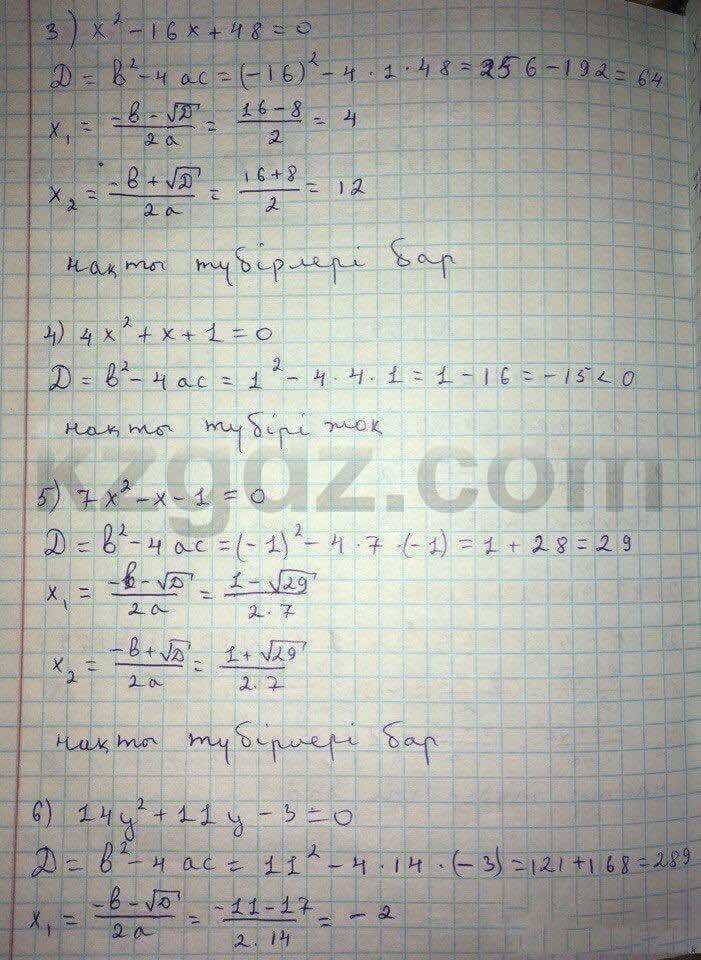 3) x² - 16x + 48 = 0
D = b² - 4ac = (-16)² - 4 · 1 · 48 = 256 - 192 = 64
x₁ = (-b - √D)/2a = (16 - 8)/2 = 4
x₂ = (-b + √D)/2a = (16 + 8)/2 = 12
нақты түбірлері бар
4) 4x² + x + 1 = 0
D = b² - 4ac = 1² - 4 · 4 · 1 = 1 - 16 = -15 < 0
нақты түбірі жоқ
kzgdz.com
5) 7x² - x - 1 = 0
D = b² - 4ac = (-1)² - 4 · 7 · (-1) = 1 + 28 = 29
x₁ = (-b - √D)/2a = (1 - √29)/2·7
x₂ = (-b + √D)/2a = (1 + √29)/2·7
нақты түбірлері бар
6) 14y² + 11y - 3 = 0
D = b² - 4ac = 11² - 4 · 14 · (-3) = 121 + 168 = 289
x₁ = (-b - √D)/2a = (-11 - 17)/2·14 = -2